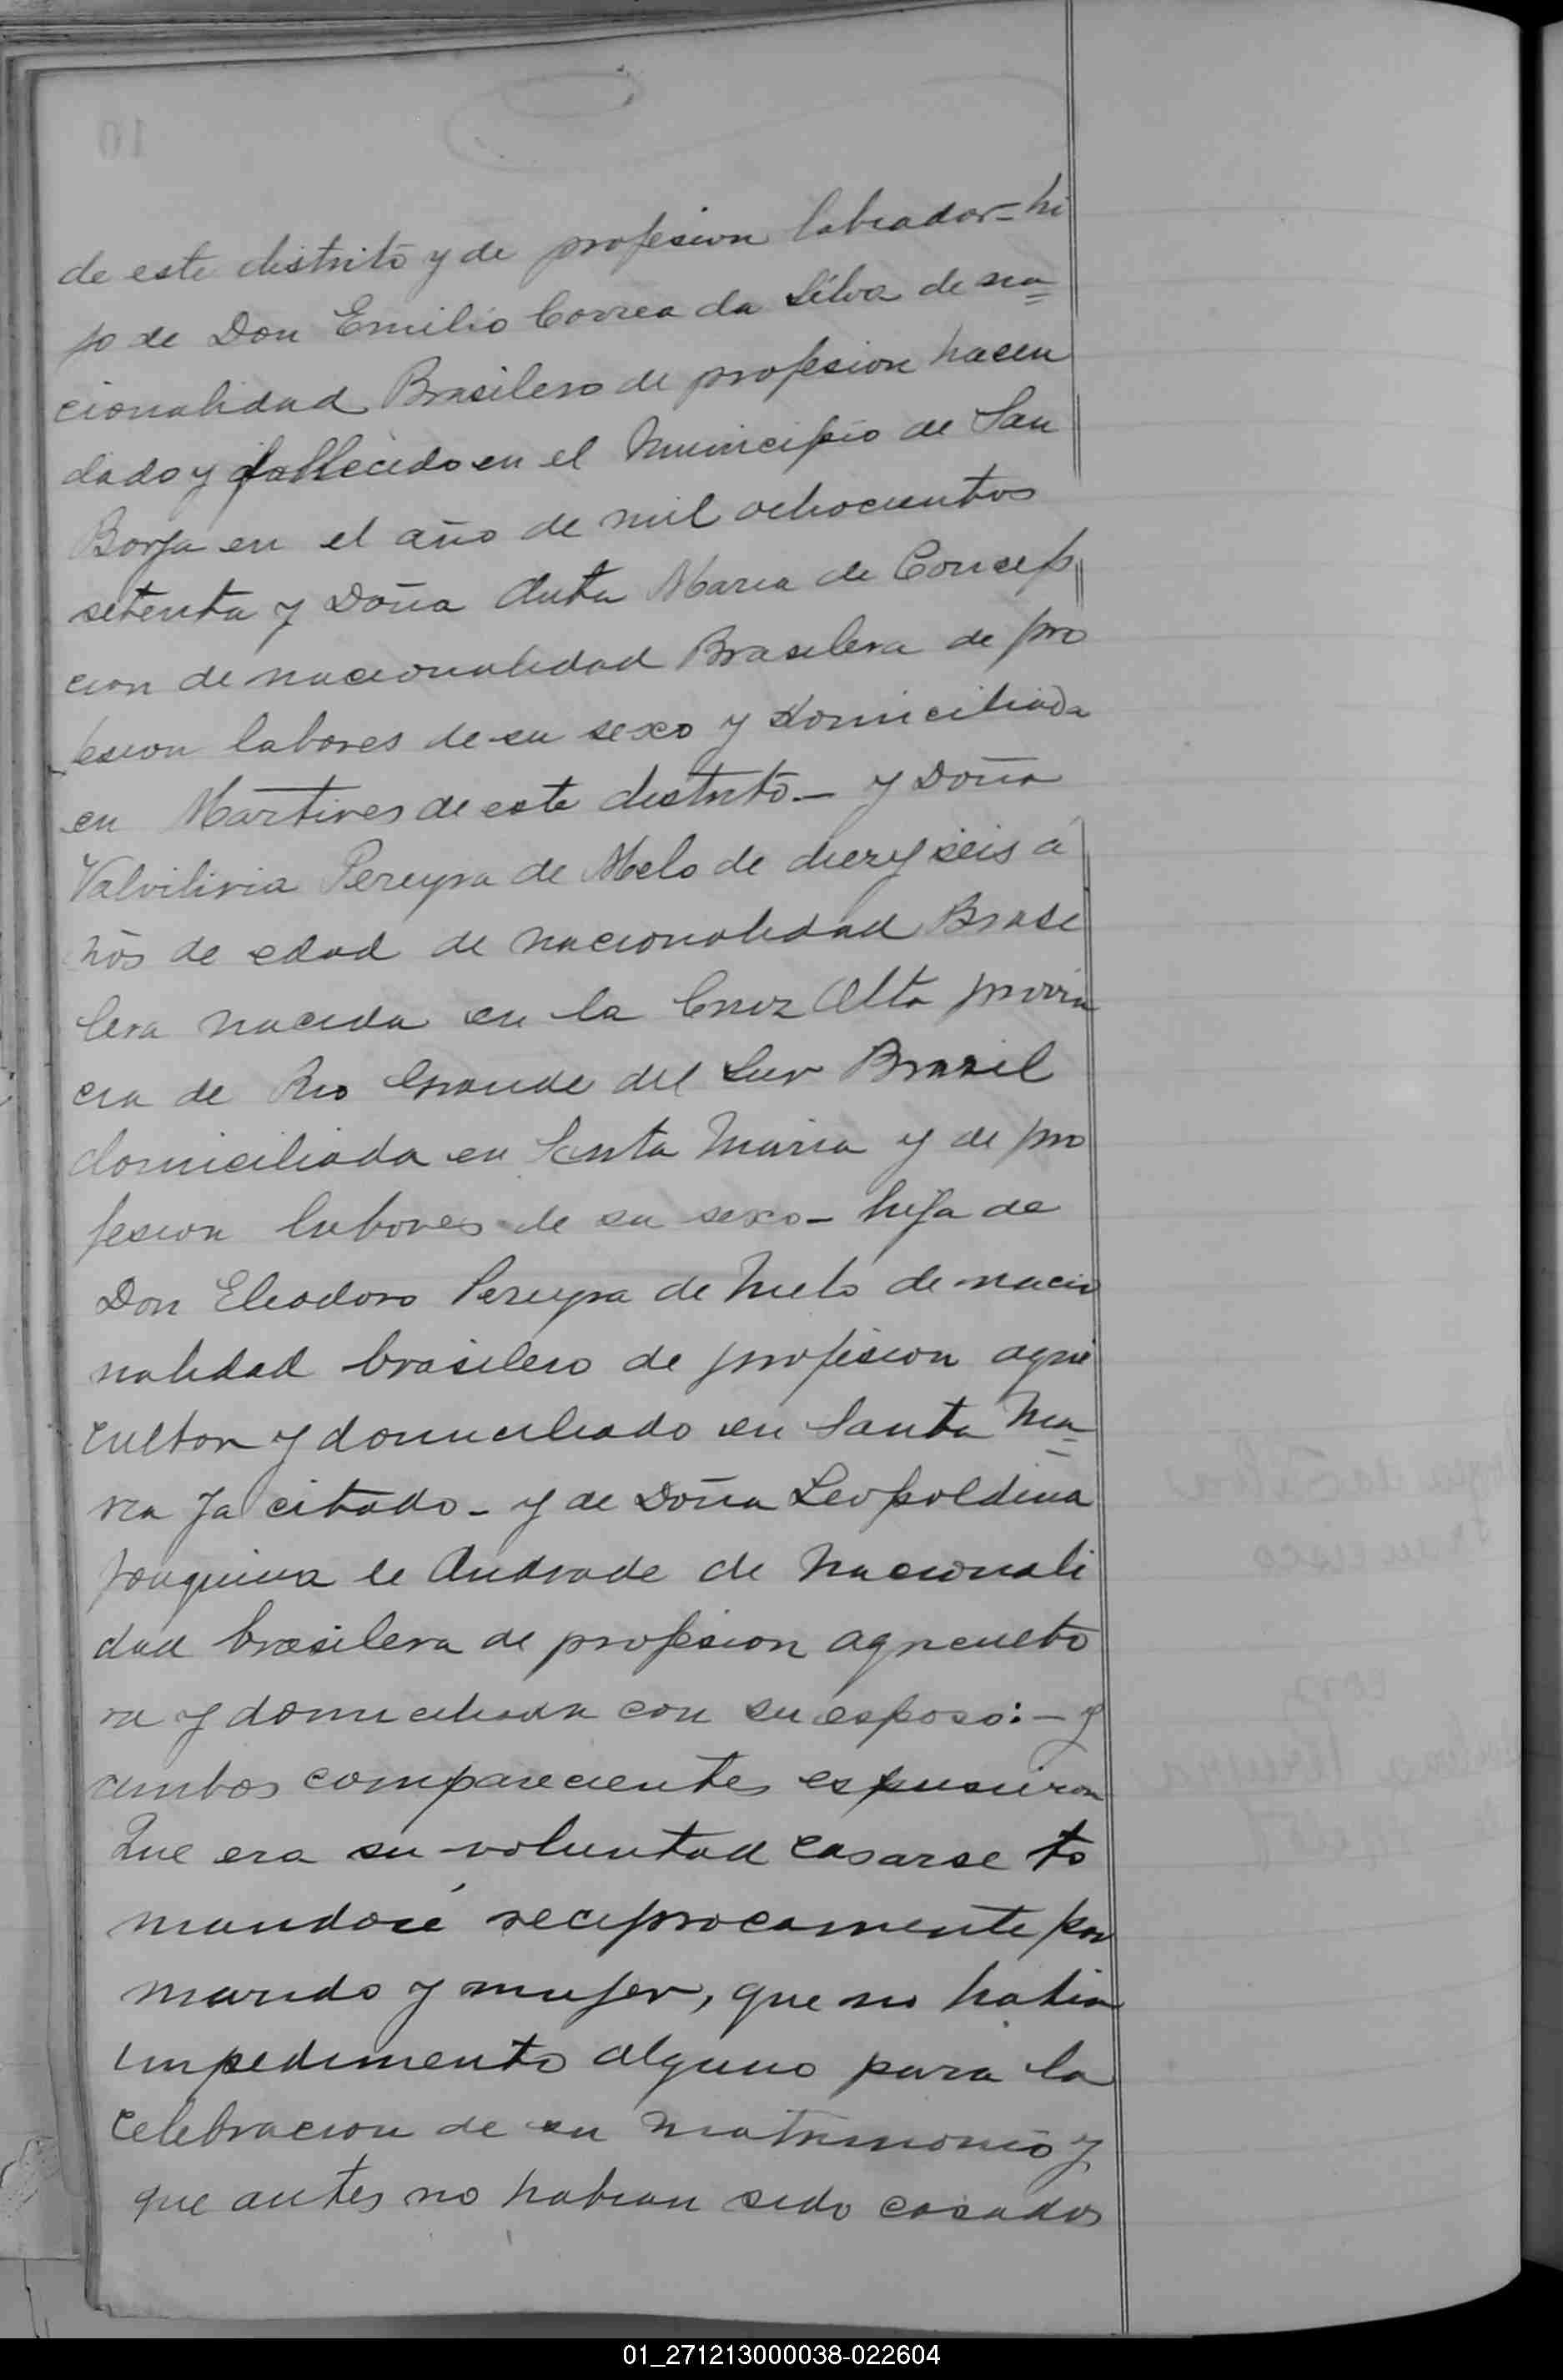 de este distrito y de profesion labrador - hi
jo de Don Emilio Correa da Silva de na=
cionalidad Brasilero de profesion hacen
dado y fallecido en el Municipio de San
Borja en el año de mil ochocientos
setenta y Doña Anta Maria de Concep
cion de nacionalidad Brasilera de pro
fesion labores de su sexo y domiciliada
en Martires de este distrito - y Doña
Valvilivia Pereyra de Melo de diez y seis a
ños de edad de nacionalidad Brasi
lera nacida en la Cruz Alta provin
cia de Rio Grande del Sur Brazil
domiciliada en Santa Maria y de pro
fesion labores de su sexo - hija de
Don Eleodoro Pereyra de Melo de nacio
nalidad brasilero de profesion agri
cultor y domiciliado en Santa Ma=
ria ya citado - y de Doña Leopoldina
Joaquina de Andrade de nacionali
dad brasilera de profesion agriculto
ra y domiciliada con su esposo: - y
ambos comparecientes espusieron
Que era su voluntad casarse to
mandosé reciprocamente por
marido y mujer, que no habia
impedimento alguno para la
celebracion de su matrimonio y
que antes no habian sido casados
01_271213000038-022604